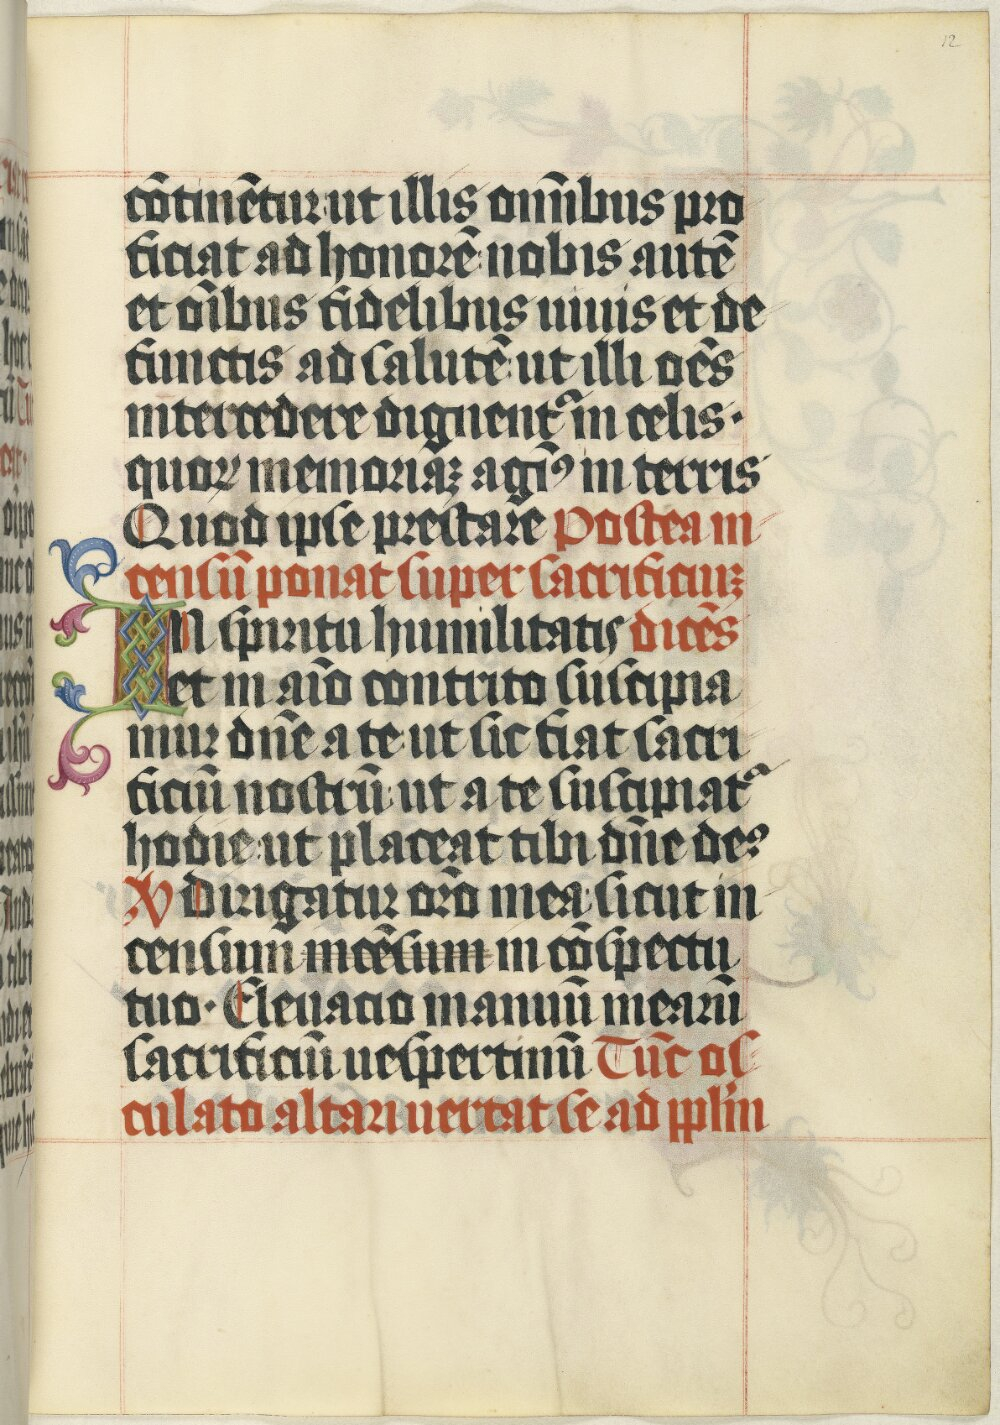 12
cōtinētur: ut illis om̄ibus pro
ficiat ad honorē: nobis autē
et oībus fidelibus uiuis et de
functis ad salutē: ut illi oēs
intercedere dignent᷑ in celis·
quoꝝ memoriaꝫ agim̄ꝰ in terris
Quod ipse prestare Postea in
censū ponat super sacrificiuꝫ
IN sp̄iritu humilitatis dicēs
et in aīo contrito suscipia
mur dn̄e a te: ut sic fiat sacri
ficiū nostrū: ut a te suscipiat᷑
hodie: ut placeat tibi dn̄e deꝰ
V dirigatur or̄o mea: sicut in
censum incēsum in cōspectu
tuo· Eleuacio manuū mearū
sacrificiū uespertinū Tūc os
culato altari uertat se ad pp̄lm